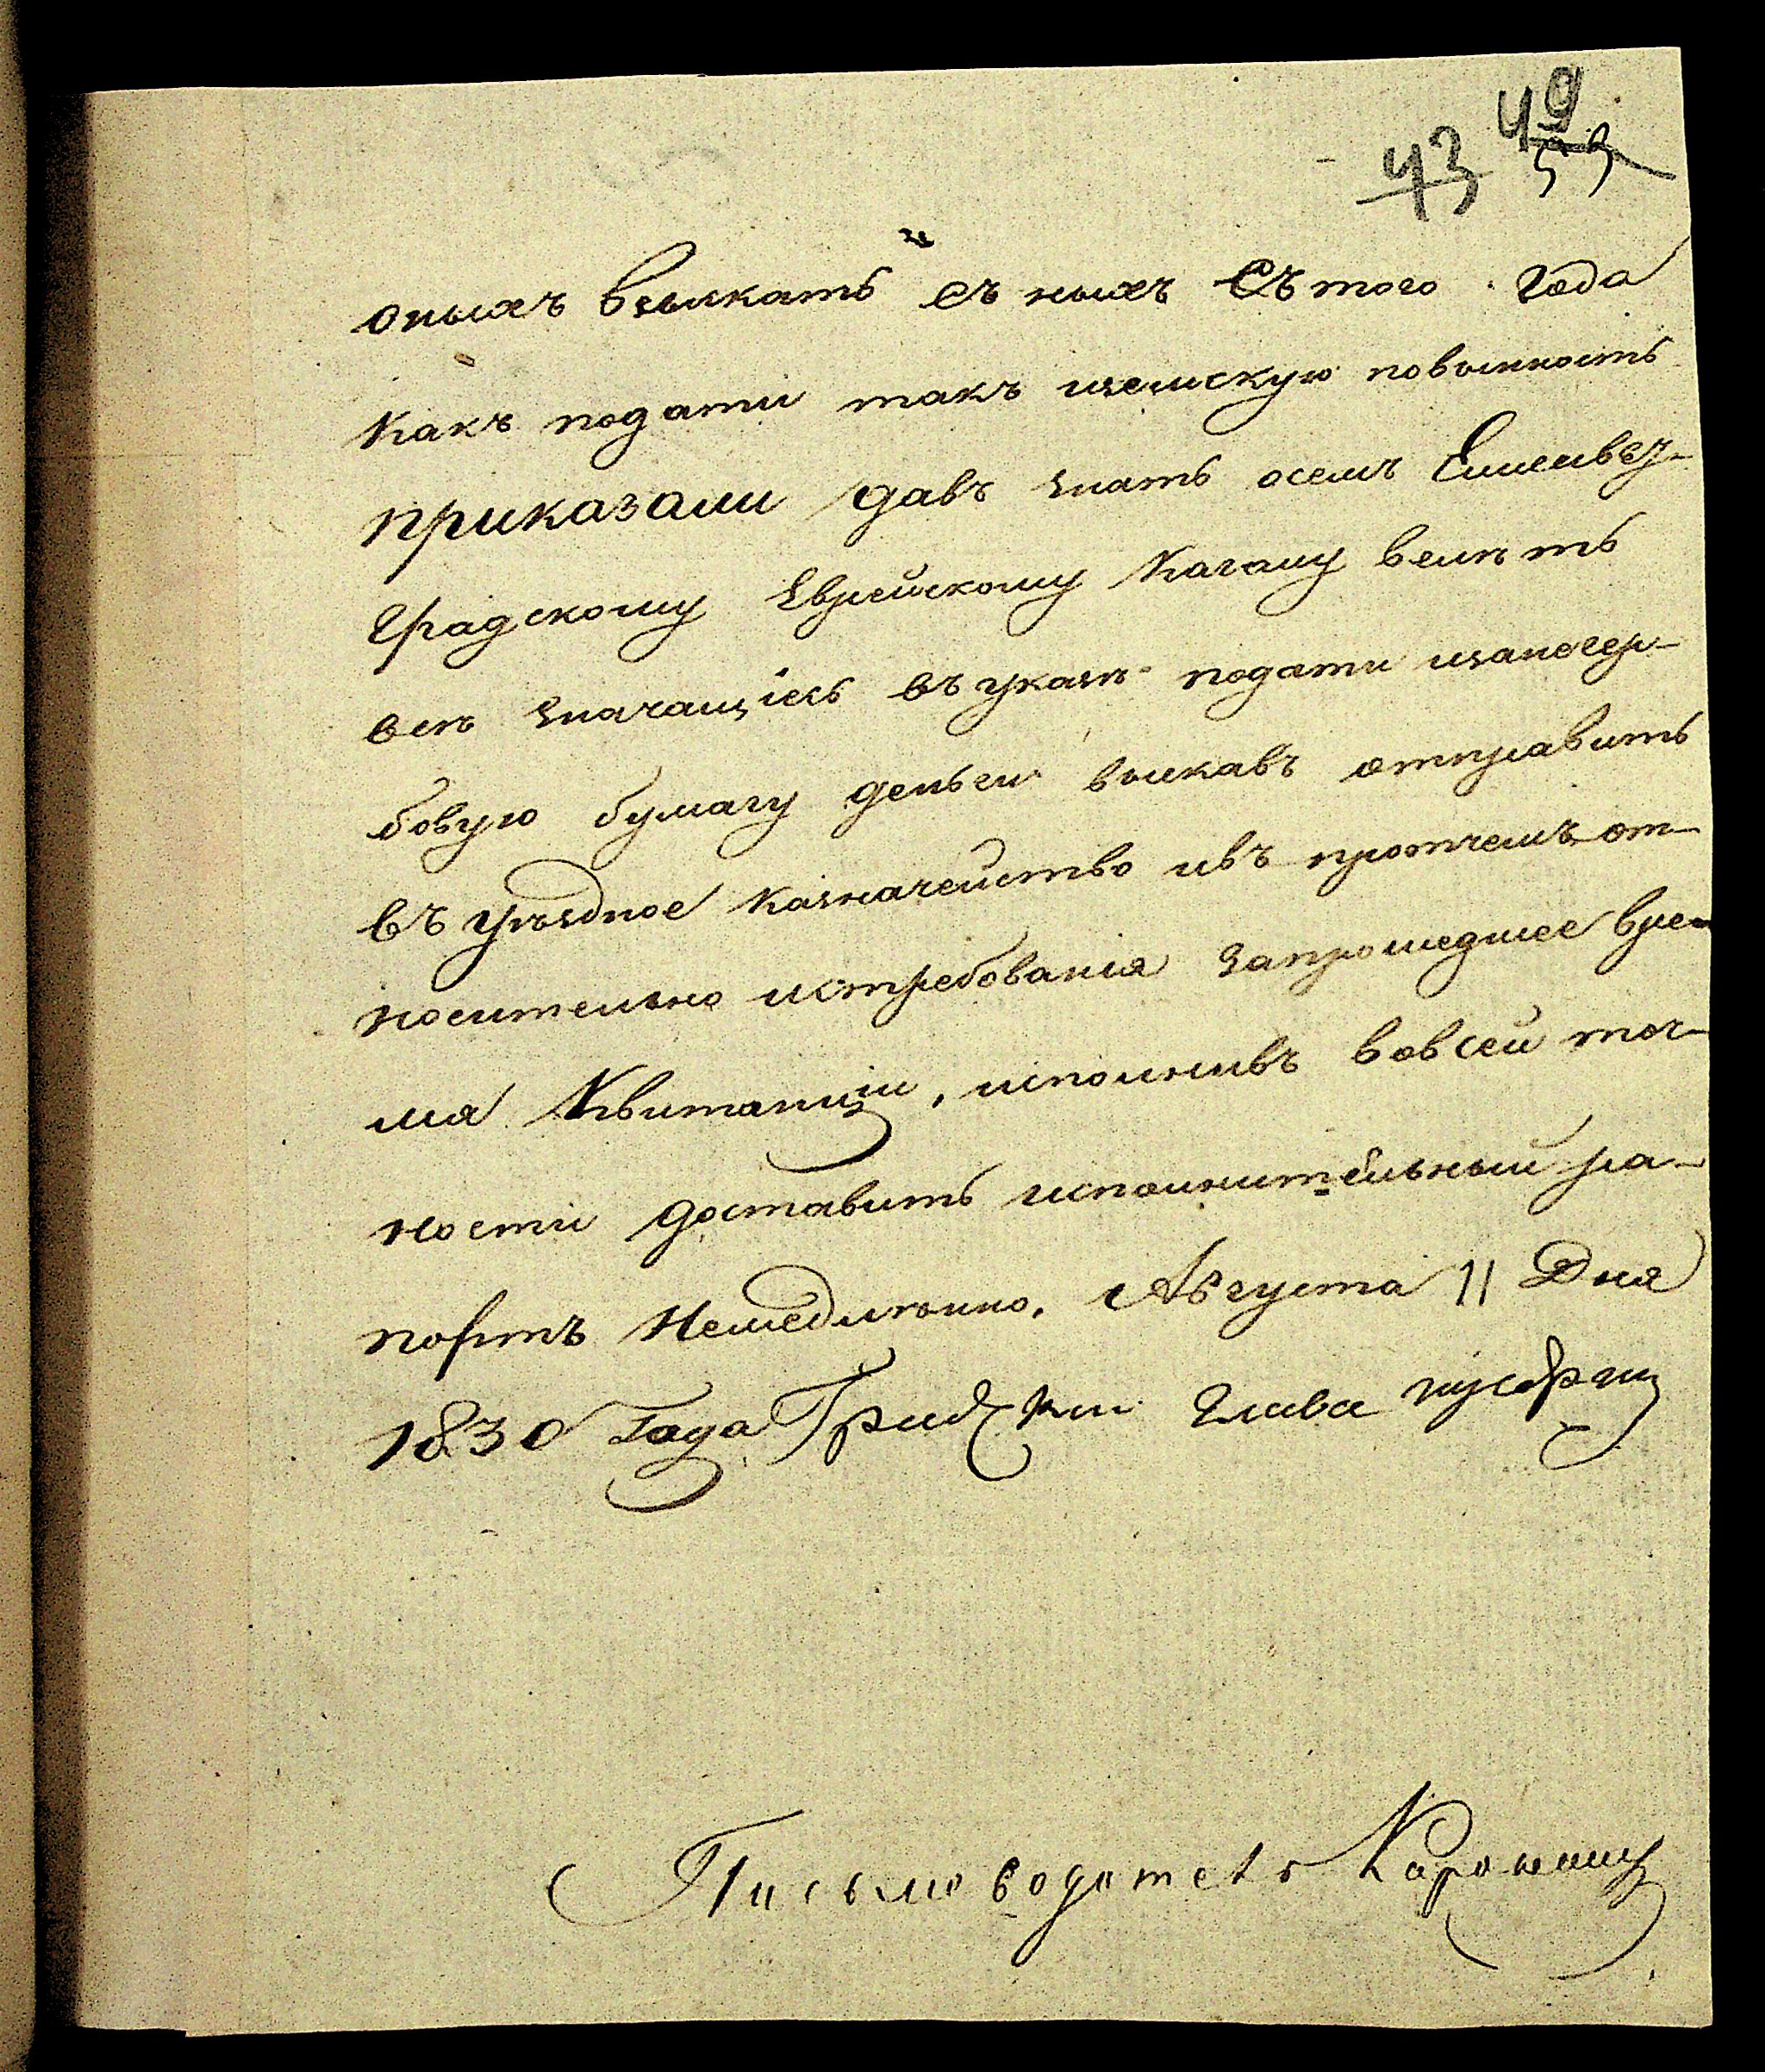 43 49
53
оныхъ взыскать съ ныхъ Съ того года
какъ подати такъ иземскую повынность
приказали давъ знать осемъ Елисавет-
градскому Еврейскому Кагалу велѣть
всѣ значащіесь въ указѣ подати изаногер-
бовую бумагу деньги взыскавъ отправить
въ уѣздное Казначейство ивъ протчемъ от-
носительно истребованія запрошедшее вре-
мя Квитанціи, исполнивъ вовсей точ-
ности доставить исполнительный ра-
портъ Немедлѣнно, Августа 11 Дня
1830 Года Градскій Глава
Письмоводитель